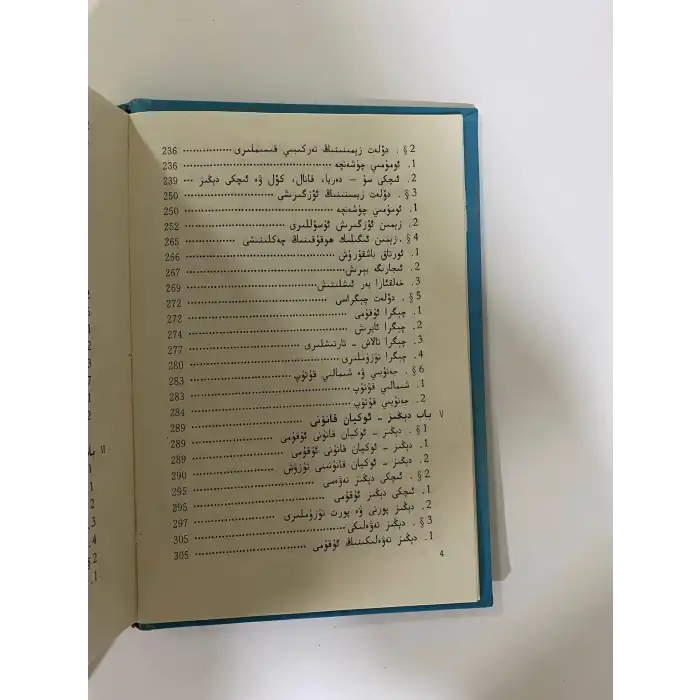 §2. دۆلەت زېمىنىنىڭ تەركىبىي قىسىملىرى ............ 236
1. ئومۇمىي چۈشەنچە ............ 236
2. ئىچكى سۇ — دەريا، قانال، كۆل ۋە ئىچكى دېڭىز ... 239
§3. دۆلەت زېمىنىنىڭ ئۆزگىرىشى ............ 250
1. ئومۇمىي چۈشەنچە ............ 250
2. زېمىن ئۆزگىرىش ئۇسۇللىرى ............ 252
§4. زېمىن ئىگىلىك هوقۇقىنىڭ چەكلىنىشى ............ 265
1. ئورتاق باشقۇرۇش ............ 266
2. ئىجارىگە بېرىش ............ 267
3. خەلقئارا يەر ئىشلىتىش ............ 269
§5. دۆلەت چېگراسى ............ 272
1. چېگرا ئۇقۇمى ............ 272
2. چېگرا ئايرىش ............ 274
3. چېگرا تالاش - تارتىشلىرى ............ 277
4. چېگرا تۈزۈملىرى ............ 280
§6. جەنۇبىي ۋە شىمالىي قۇتۇپ ............ 283
1. شىمالىي قۇتۇپ ............ 283
2. جەنۇبىي قۇتۇپ ............ 284
V باب دېڭىز - ئوكيان قانۇنى ............ 289
§1. دېڭىز - ئوكيان قانۇنى ئۇقۇمى ............ 289
1. دېڭىز - ئوكيان قانۇنى ئۇقۇمى ............ 289
2. دېڭىز - ئوكيان قانۇنىنى تۈزۈش ............ 290
§2. ئىچكى دېڭىز تەۋەسى ............ 295
1. ئىچكى دېڭىز ئۇقۇمى ............ 295
2. دېڭىز پورتى ۋە پورت تۈزۈملىرى ............ 297
§3. دېڭىز تەۋەلىكى ............ 305
1. دېڭىز تەۋەلىكىنىڭ ئۇقۇمى ............ 305
4